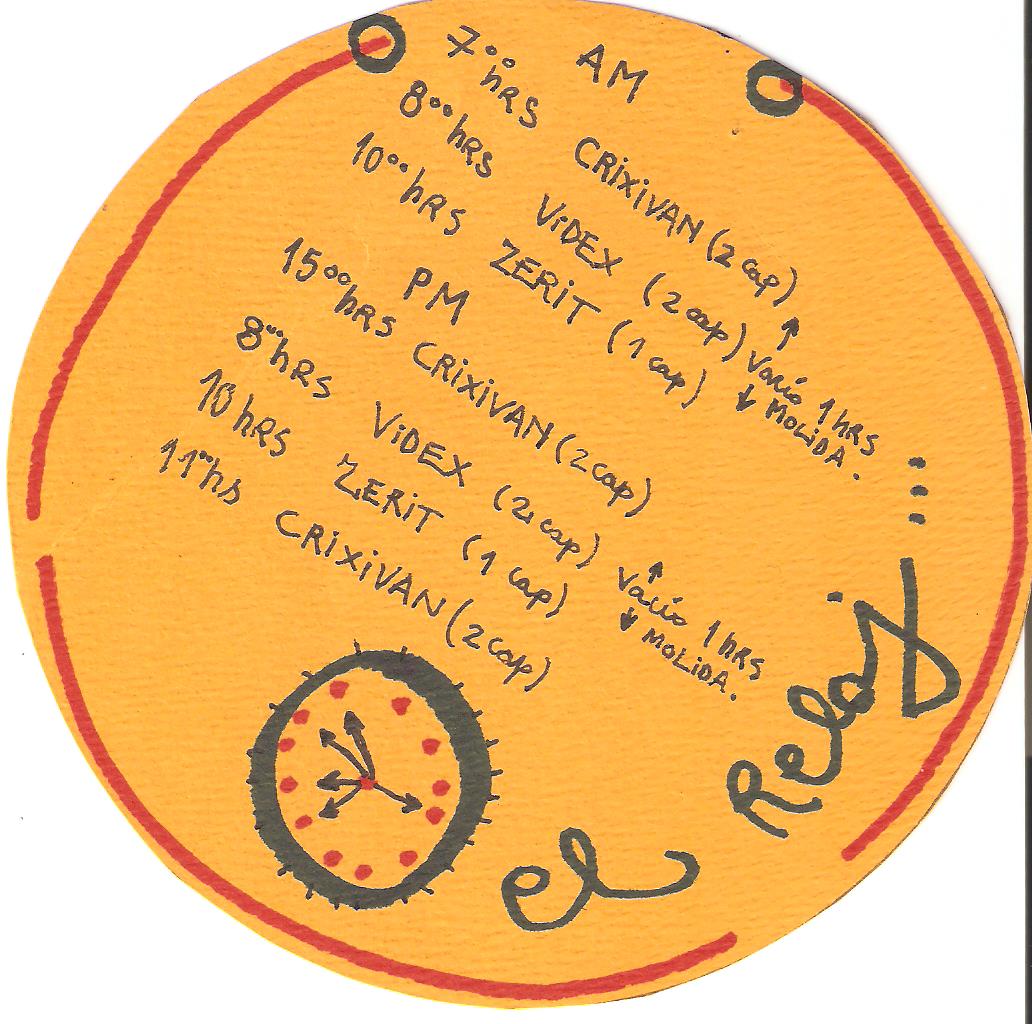 AM
7°°hRS CRiXiVAN (2 cap)
8°°hRS ViDEX (2 cap) ↑ vacío 1 hRS
10°°hRS ZERiT (1 cap) ↓ MOLiDA.
PM
15°°hRS CRiXiVAN (2 cap)
8°°hRS ViDEX (2 cap) ↑ vacío 1 hRS
10 hRS ZERiT (1 cap) ↓ MOLiDA.
11°°hs CRiXiVAN (2 cap)
el Reloj ...